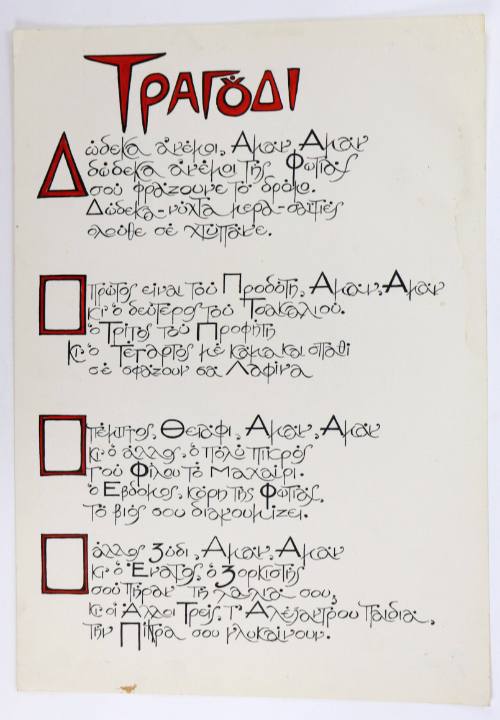 ΤΡΑΓȣΔΙ
Δώδεκα άνεμοι, Αμάν, Αμάν
δώδεκα άνέμοι τής Φωτιάς
σού φράζουνε τό δρόμο.
Δώδεκα-νύχτα μερα-σαϊτιές
ολούθε σέ χτυπάνε.
Ο πρώτος είναι τού Προδότη, Αμάν, Αμάν
κι ό δεύτερος τού Τσακαλιού.
ό Τρίτος τού Προφήτη
Κι ό Τέταρτος μέ κάμα και σπαθί
σέ σφάζουν σα Λαφίνα
Ο πέμπτος, Θειάφι, Αμάν, Αμάν
κι ό άλλος, ό πολύ πικρός
τού Φίλου τό Μαχαίρι.
ό Εβδομος, κόρη τής Φωτιάς,
τό βιός σου διαγουμίζει.
Ο άλλος Ζώδι, Αμάν, Αμάν
κι ό Ένατος, ό Ξορκιστής
σού πήραν τη λαλιά σου,
κι οί Αλλοι Τρείς, τ' Αλέξαντρου Παιδιά,
τήν Πίκρα σου γλυκαίνουν.